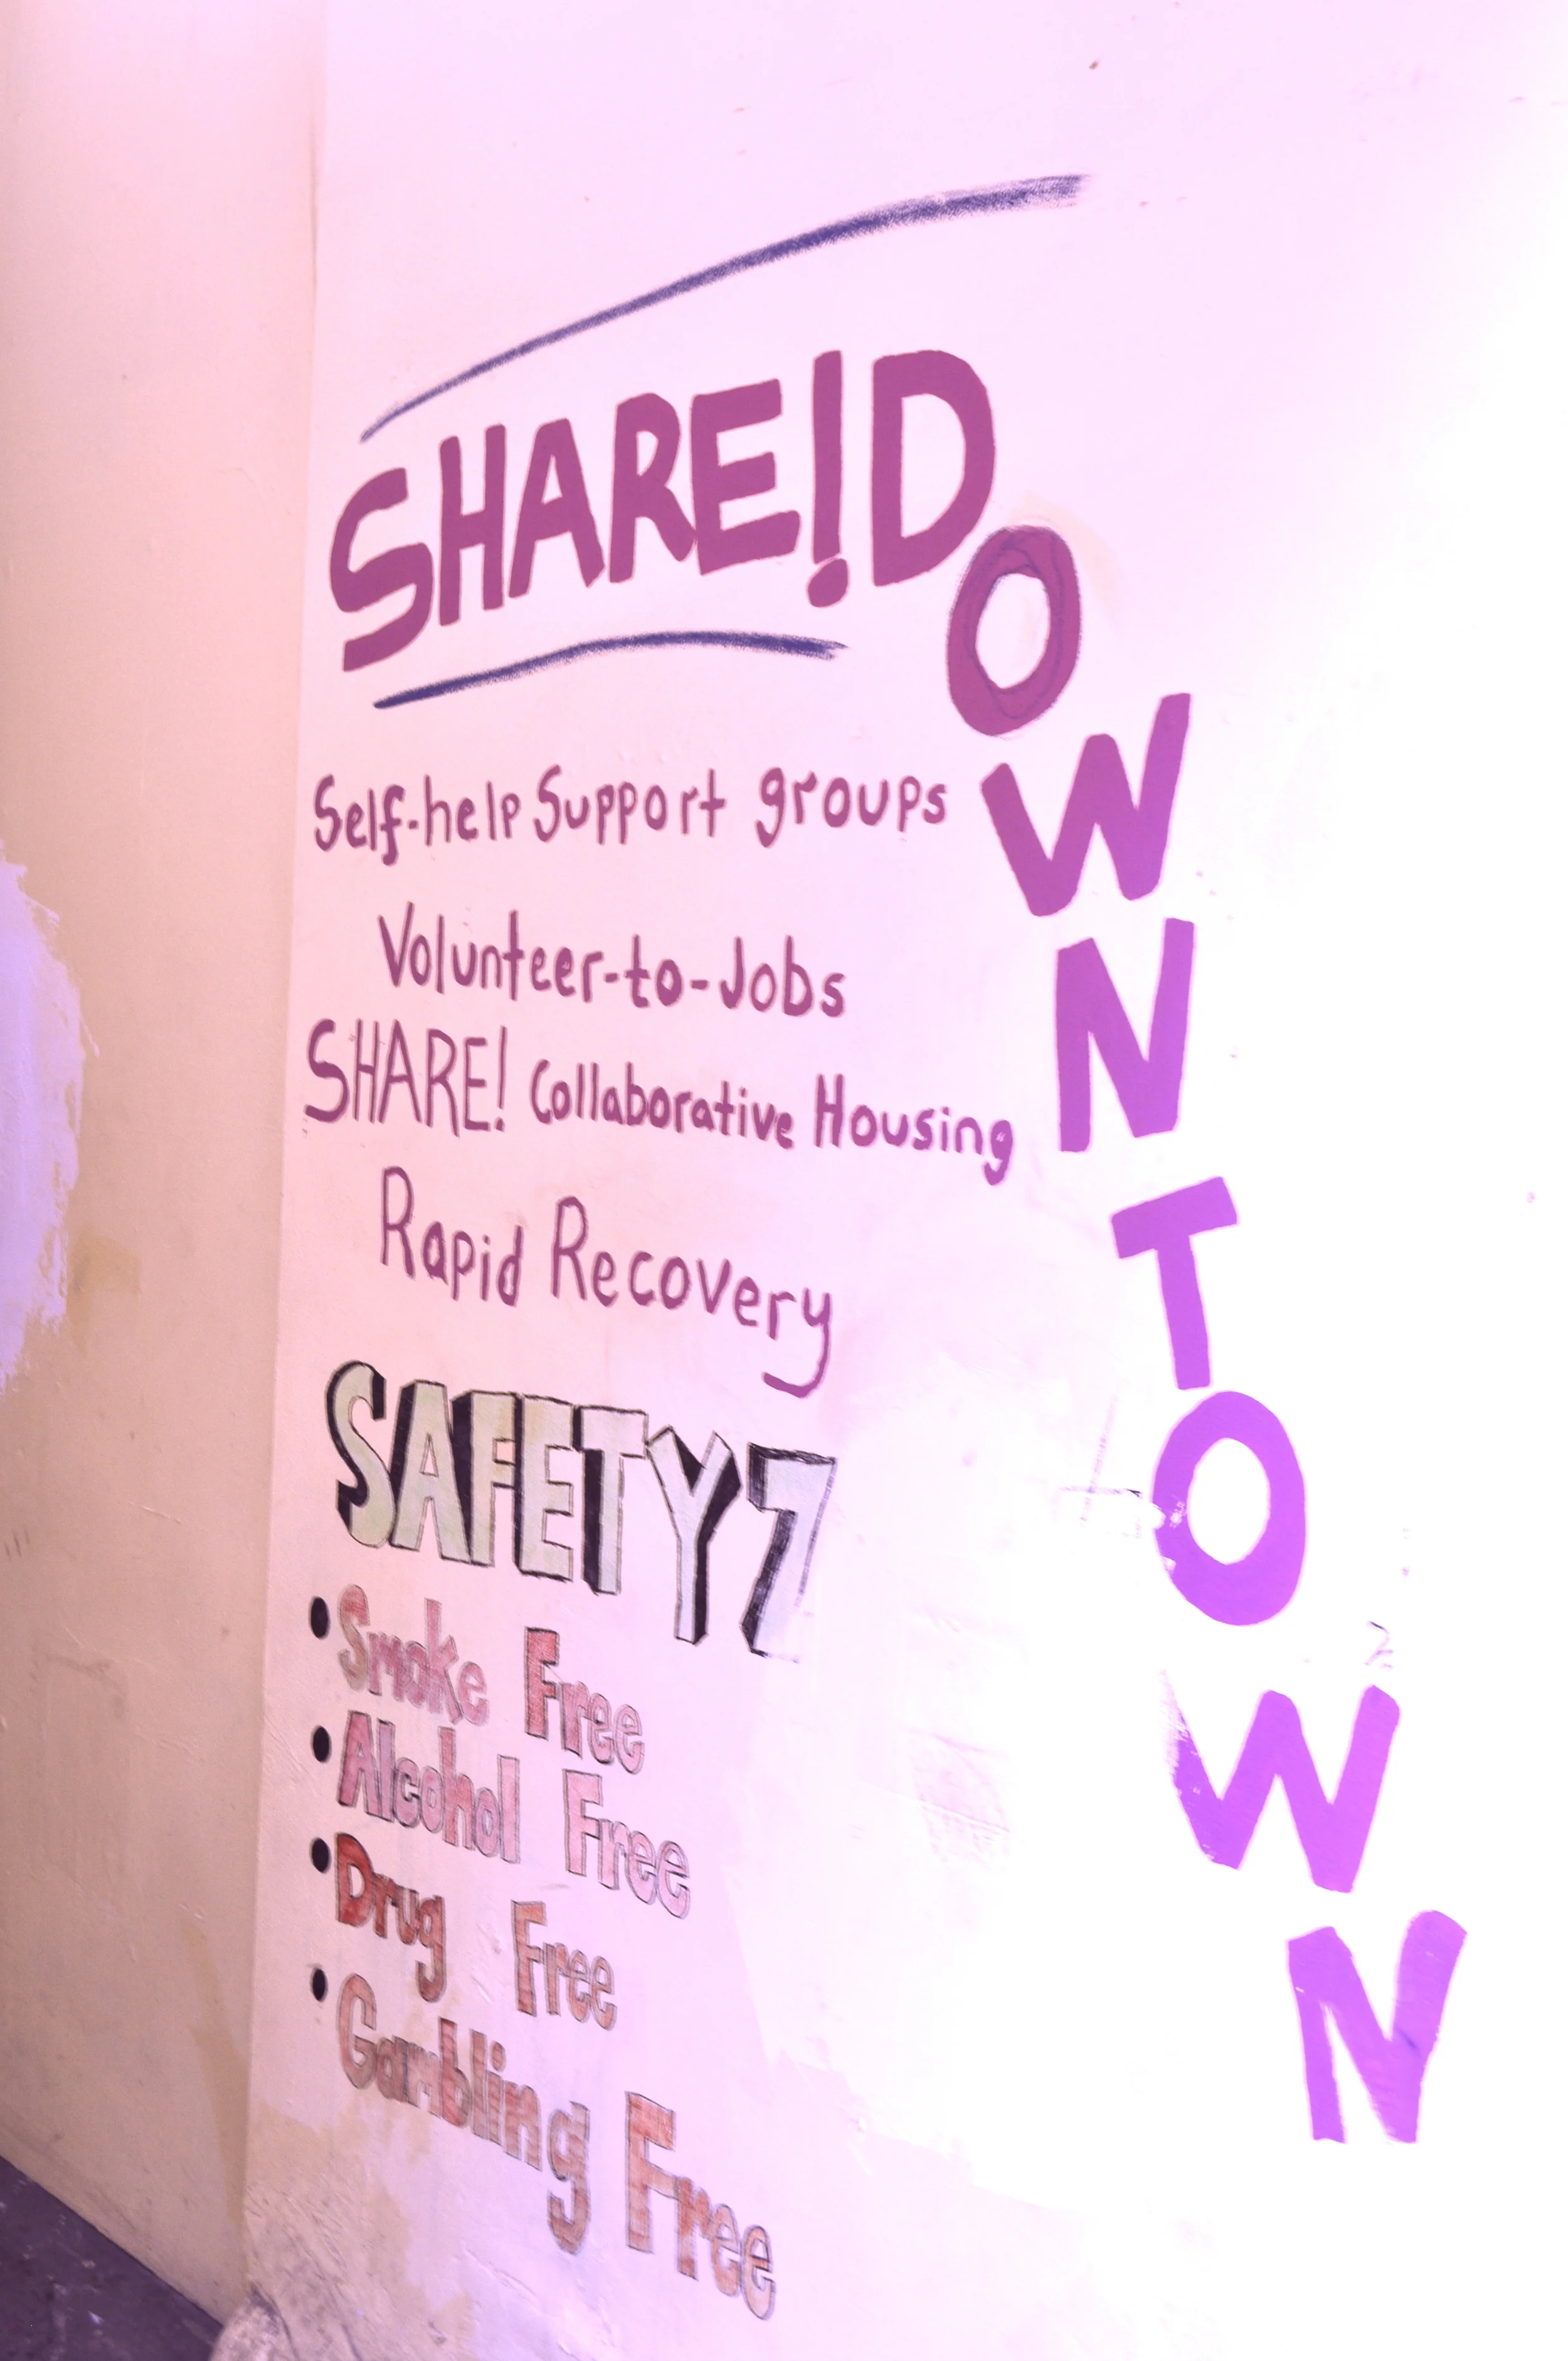 SHARE! DOWNTOWN
Self-help Support groups
Volunteer-to-Jobs
SHARE! Collaborative Housing
Rapid Recovery
SAFETY 7
• Smoke Free
• Alcohol Free
• Drug Free
• Gambling Free